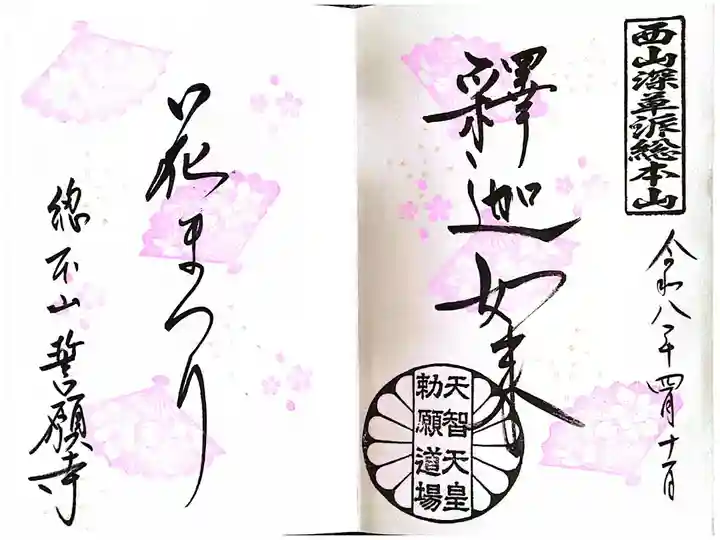 西山深草派総本山
令和八年四月十一日
釋迦如来
天智天皇
勅願道場
花まつり
総本山 誓願寺